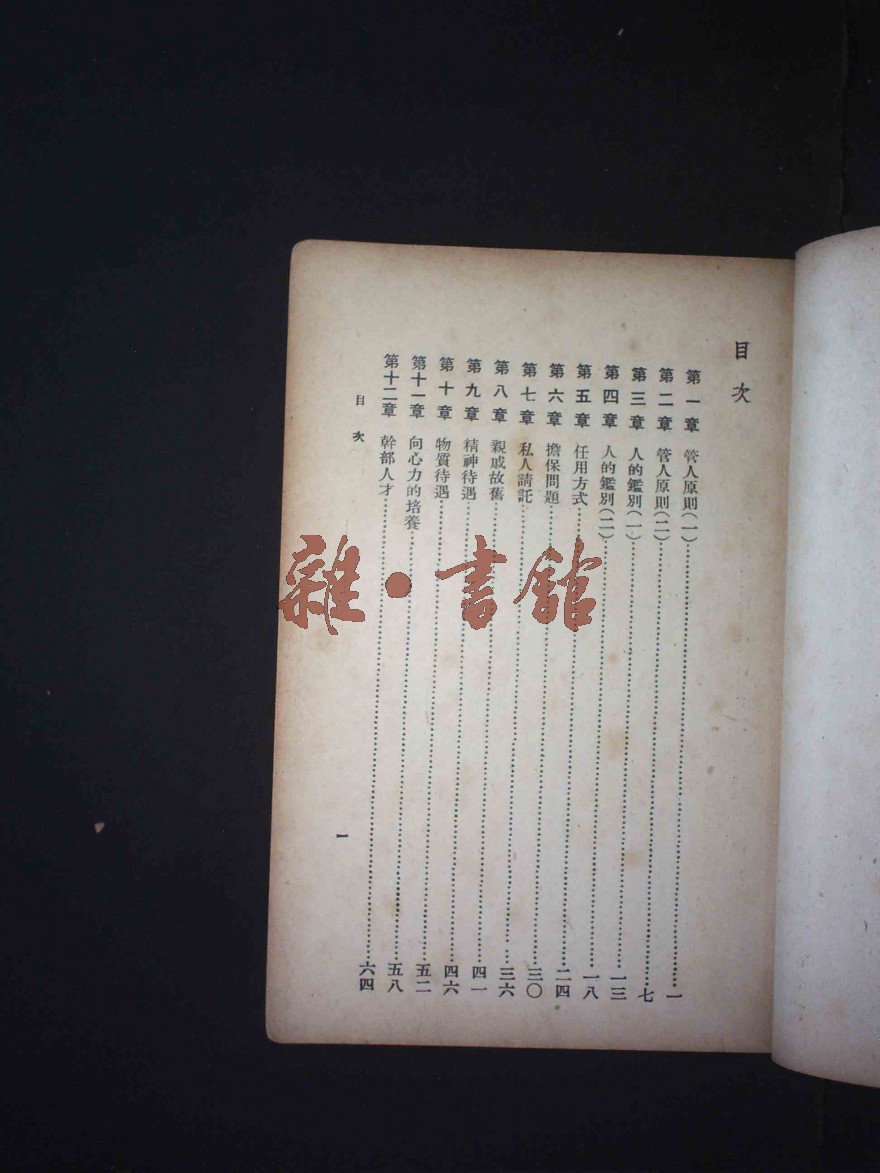 目次
第一章 管人原則(一)……一
第二章 管人原則(二)……七
第三章 人的鑑別(一)……一三
第四章 人的鑑別(二)……一八
第五章 任用方式……二四
第六章 擔保問題……三〇
第七章 私人請託……三六
第八章 親戚故舊……四一
第九章 精神待遇……四六
第十章 物質待遇……五二
第十一章 向心力的培養……五八
第十二章 幹部人才……六四
目次
一
雜·書館